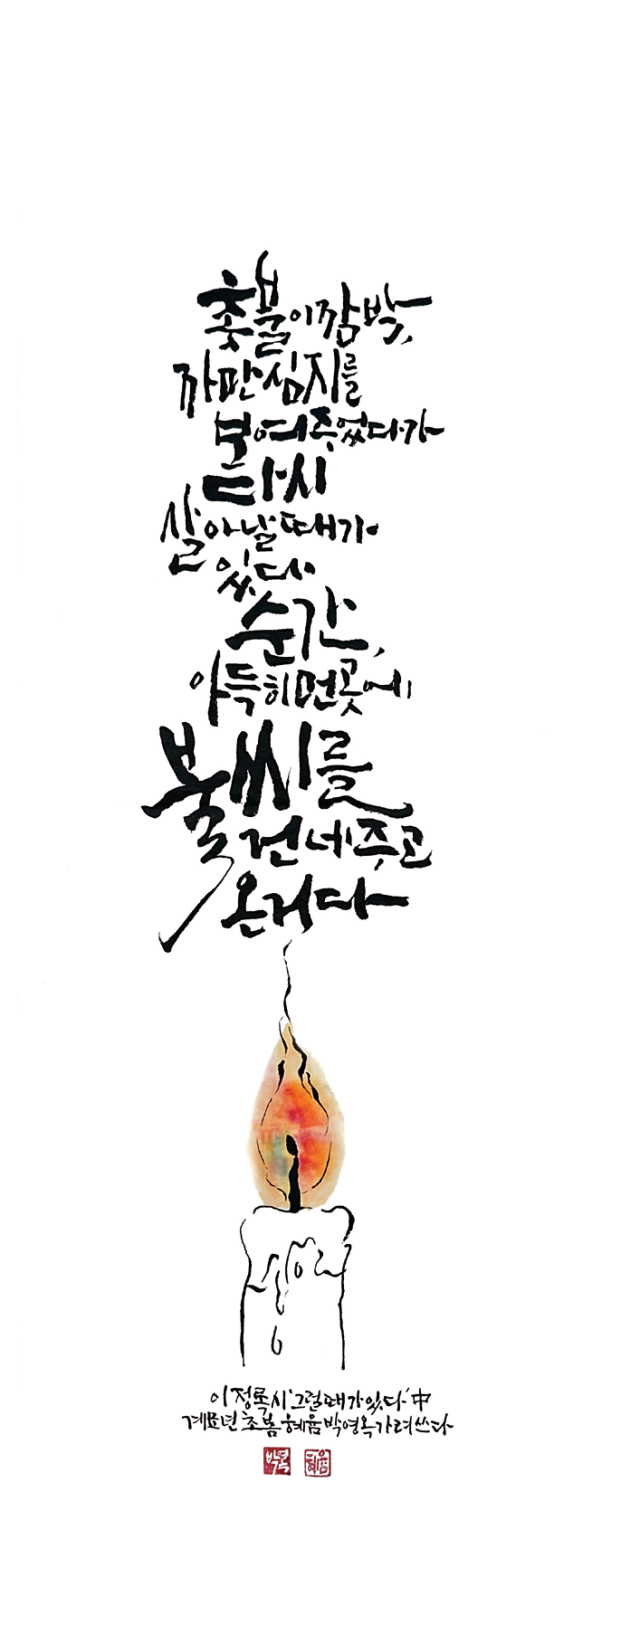 촛불이 깜박,
까만 심지를
보여주었다가
다시
살아날 때가
있다
순간,
아득히 먼 곳에
불씨를
건네주고
온 거다
이정록 시 '그럴 때가 있다' 中
계묘년 초봄 혜윰 박영옥 가려 쓰다